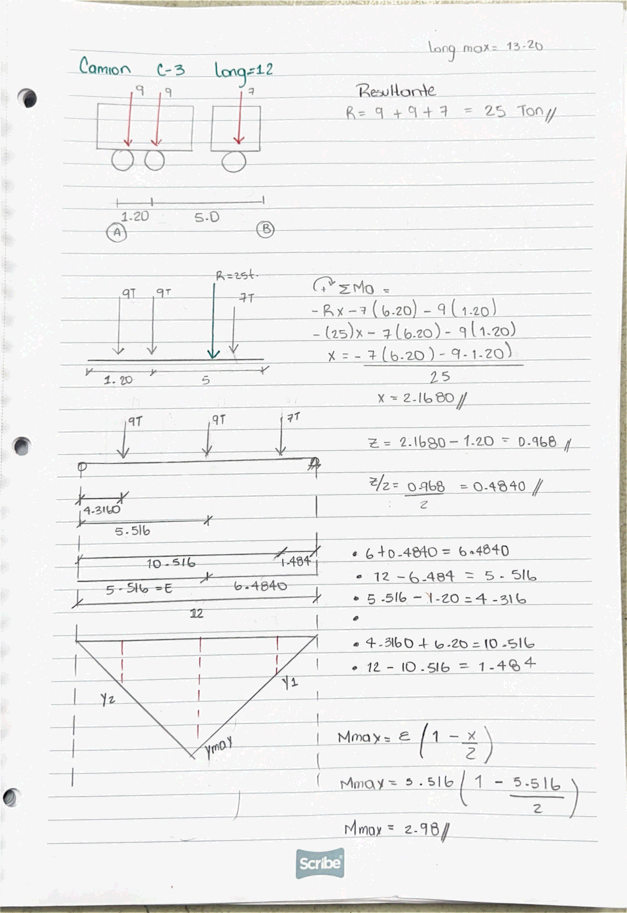 long max= 13.20
Camion C-3 long=12
9 9 7
Resultante
R= 9 + 9 + 7 = 25 Ton//
1.20 5.0
A B
R=25t.
9T 9T 7T
ΣMo =
-Rx - 7(6.20) - 9(1.20)
-(25)x - 7(6.20) - 9(1.20)
x = - 7(6.20) - 9-1.20)
25
1.20 5
x = 2.1680//
9T 9T 7T
Z = 2.1680 - 1.20 = 0.968//
Z/2 = 0.968 = 0.4840//
2
4.3160
5.516
10.516 1.484
5.516 = E 6.4840
12
• 6+0.4840 = 6.4840
• 12 - 6.484 = 5.516
• 5.516 - 1.20 = 4.316
•
• 4.3160 + 6.20 = 10.516
• 12 - 10.516 = 1.484
Y2 Y1
Ymax
Mmax = E (1 - x/2)
Mmax = 5.516 (1 - 5.516/2)
Mmax = 2.98//
Scribe